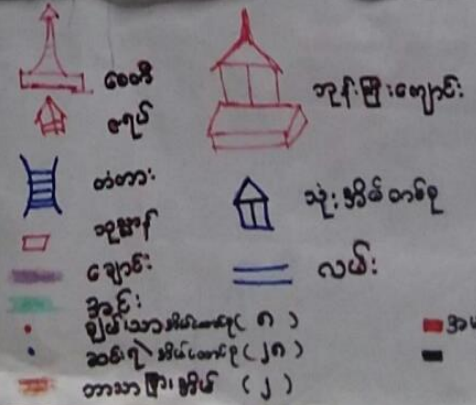 စေတီ
ဇရပ်
တံတား
သုဿာန်
ချောင်း
အင်း
ချမ်းသာအိမ်ထောင်စု ( ၈ )
ဆင်းရဲအိမ်ထောင်စု ( ၂၈ )
ဘာသာခြားအိမ် ( ၂ )
ဘုန်းကြီးကျောင်း
သုံးအိမ်တစ်စု
လမ်း